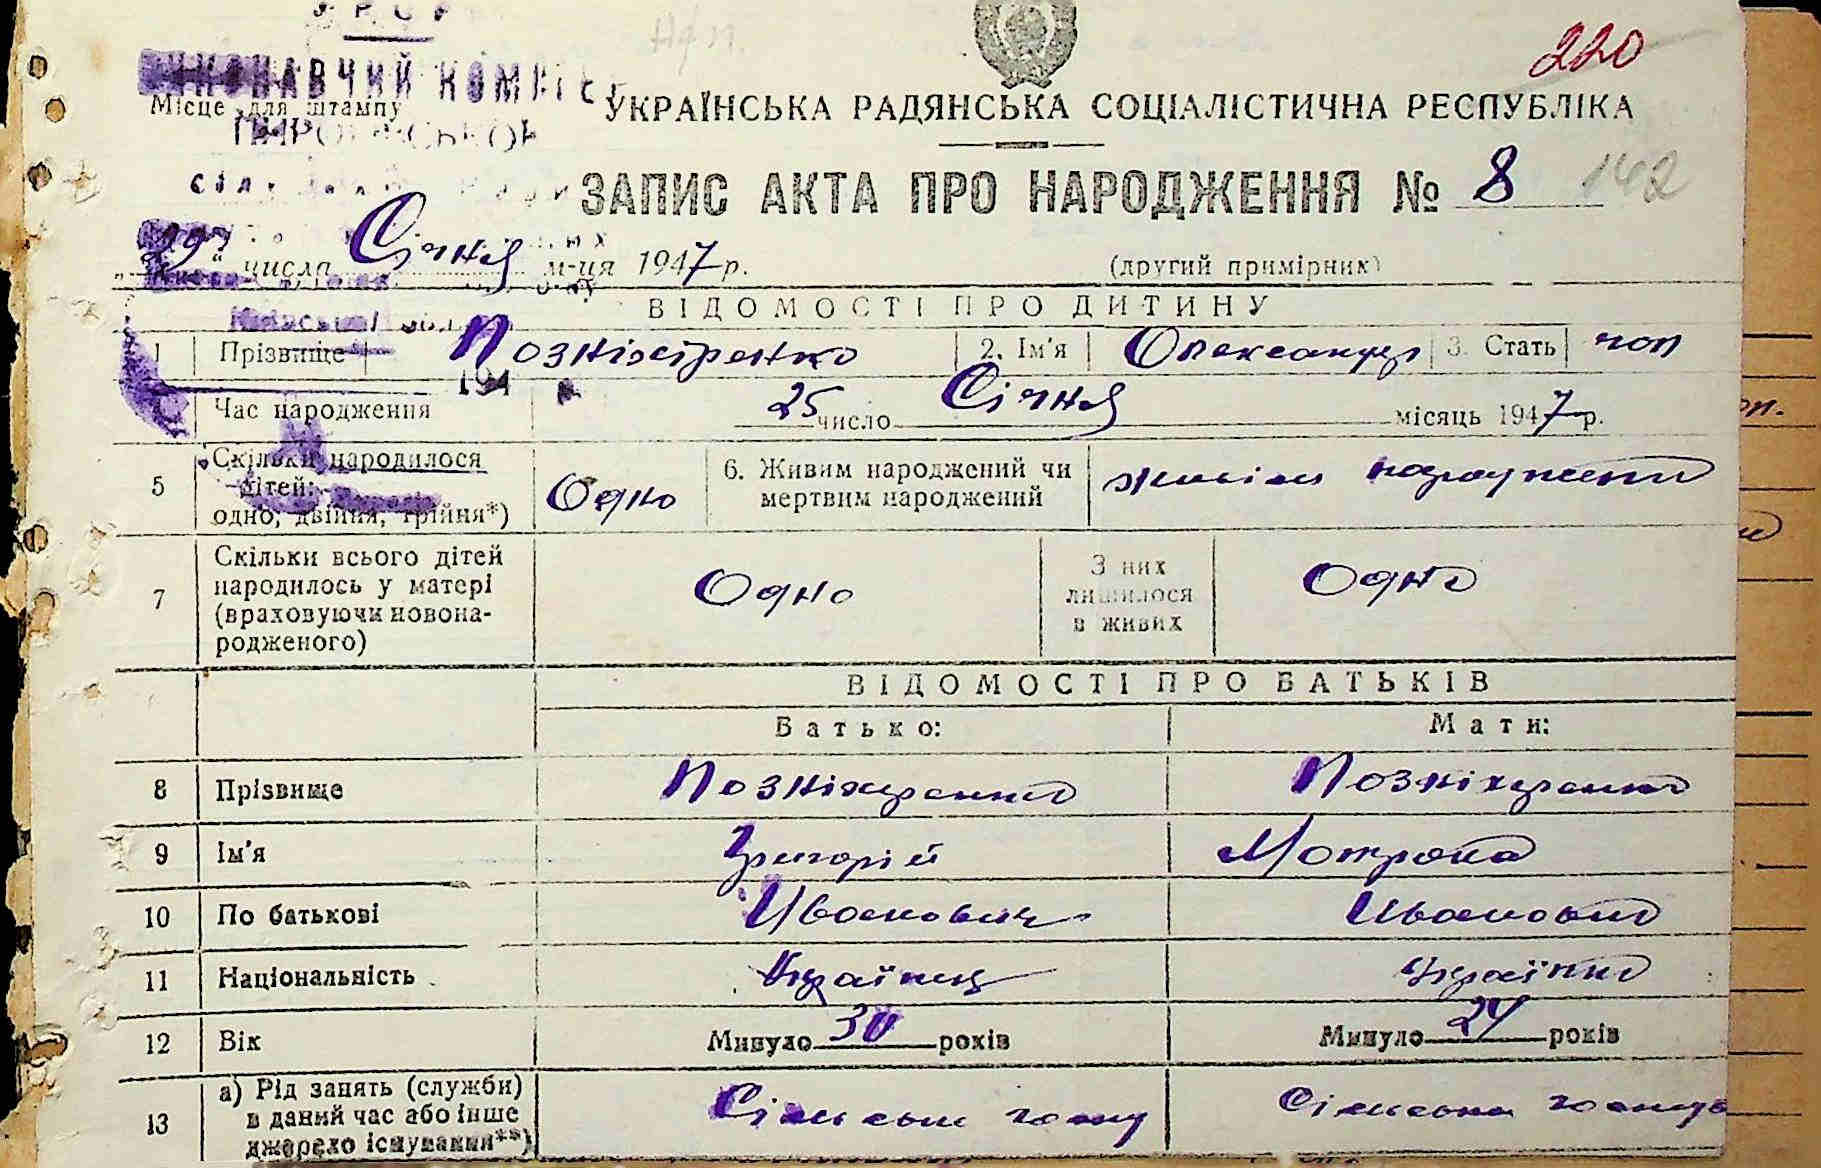 УРСР
ВИКОНАВЧИЙ КОМІТЕТ
220
Місце для штампу
УКРАЇНСЬКА РАДЯНСЬКА СОЦІАЛІСТИЧНА РЕСПУБЛІКА
ЗАПИС АКТА ПРО НАРОДЖЕННЯ № 8 142
"29" числа Січня м-ця 1947 р.
(другий примірник)
ВІДОМОСТІ ПРО ДИТИНУ
1 Прізвище 2. Ім'я Олександр 3. Стать чол
194
Час народження 25 число Січня місяць 1947 р.
5 Скільки народилося дітей: одно, двійня, трійня*) Одно 6. Живим народжений чи мертвим народжений живим народжений
7 Скільки всього дітей народилось у матері (враховуючи новонародженого) Одно З них лишилося в живих Одно
ВІДОМОСТІ ПРО БАТЬКІВ
Батько: Мати:
8 Прізвище
9 Ім'я Григорій Мотрона
10 По батькові Іванович Івановна
11 Національність Українец Українка
12 Вік Минуло 30 років Минуло 24 років
13 а) Рід занять (служби) в даний час або інше джерело існування**) Сільське господ